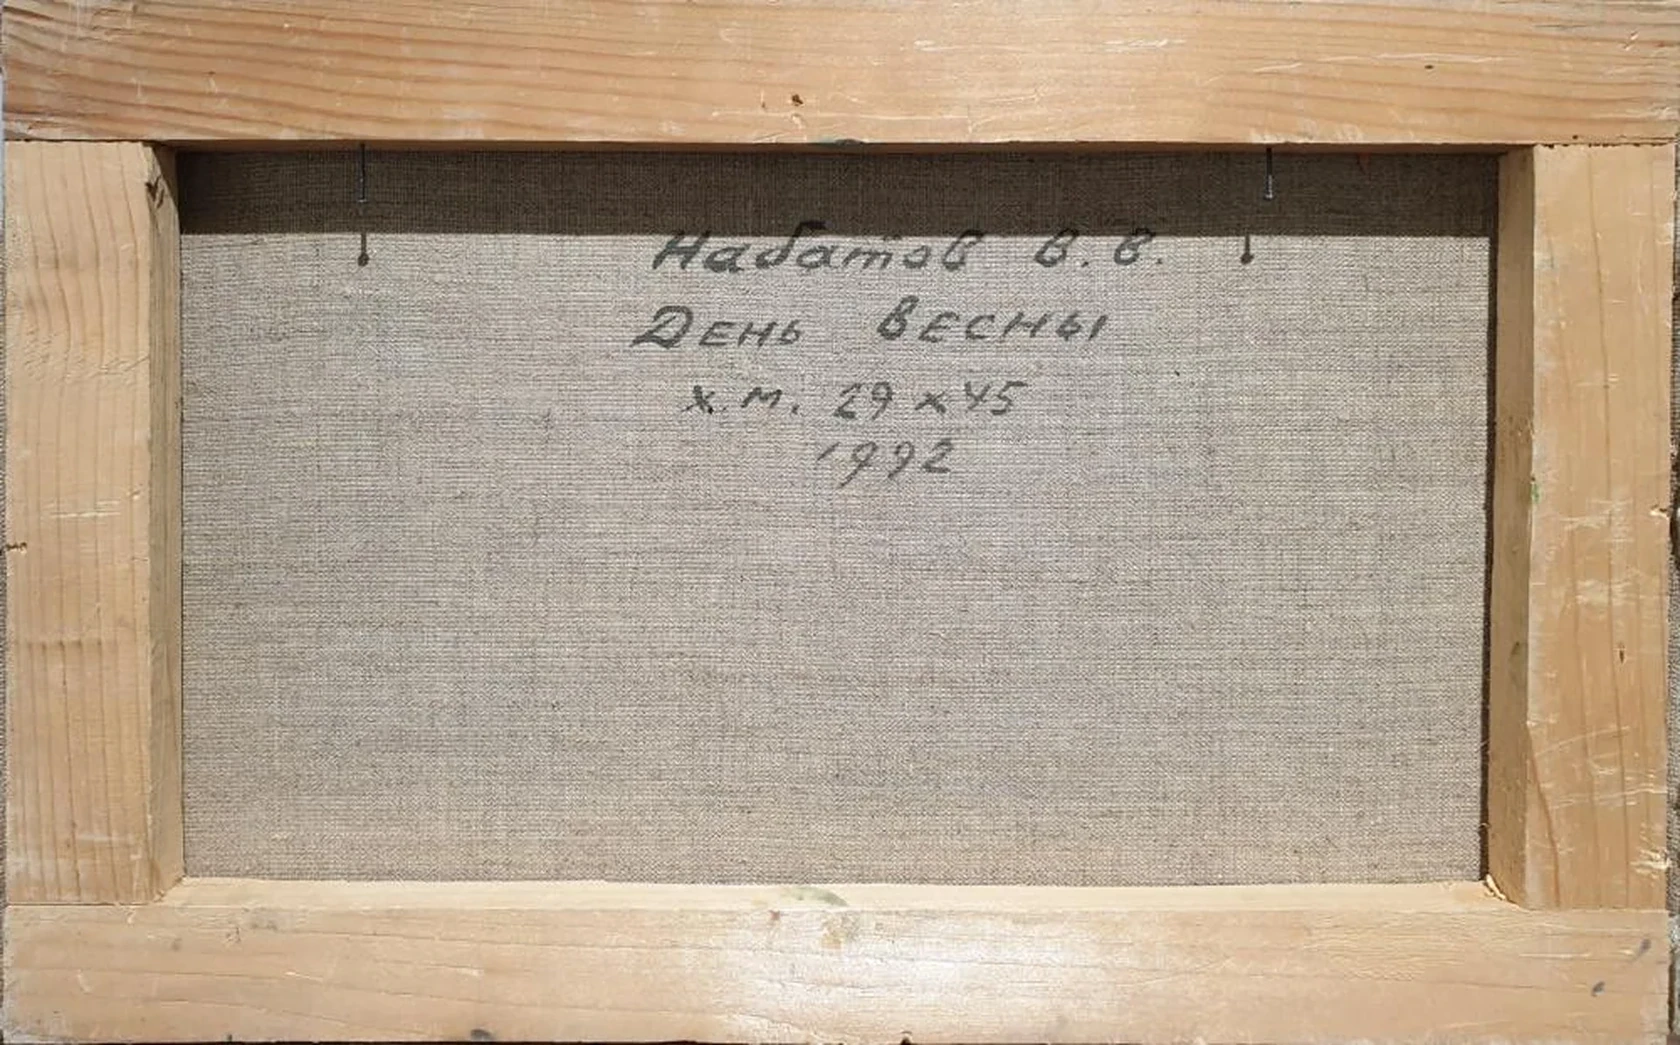 Набатов В.В.
День весны
х.м. 29 х 45
1992